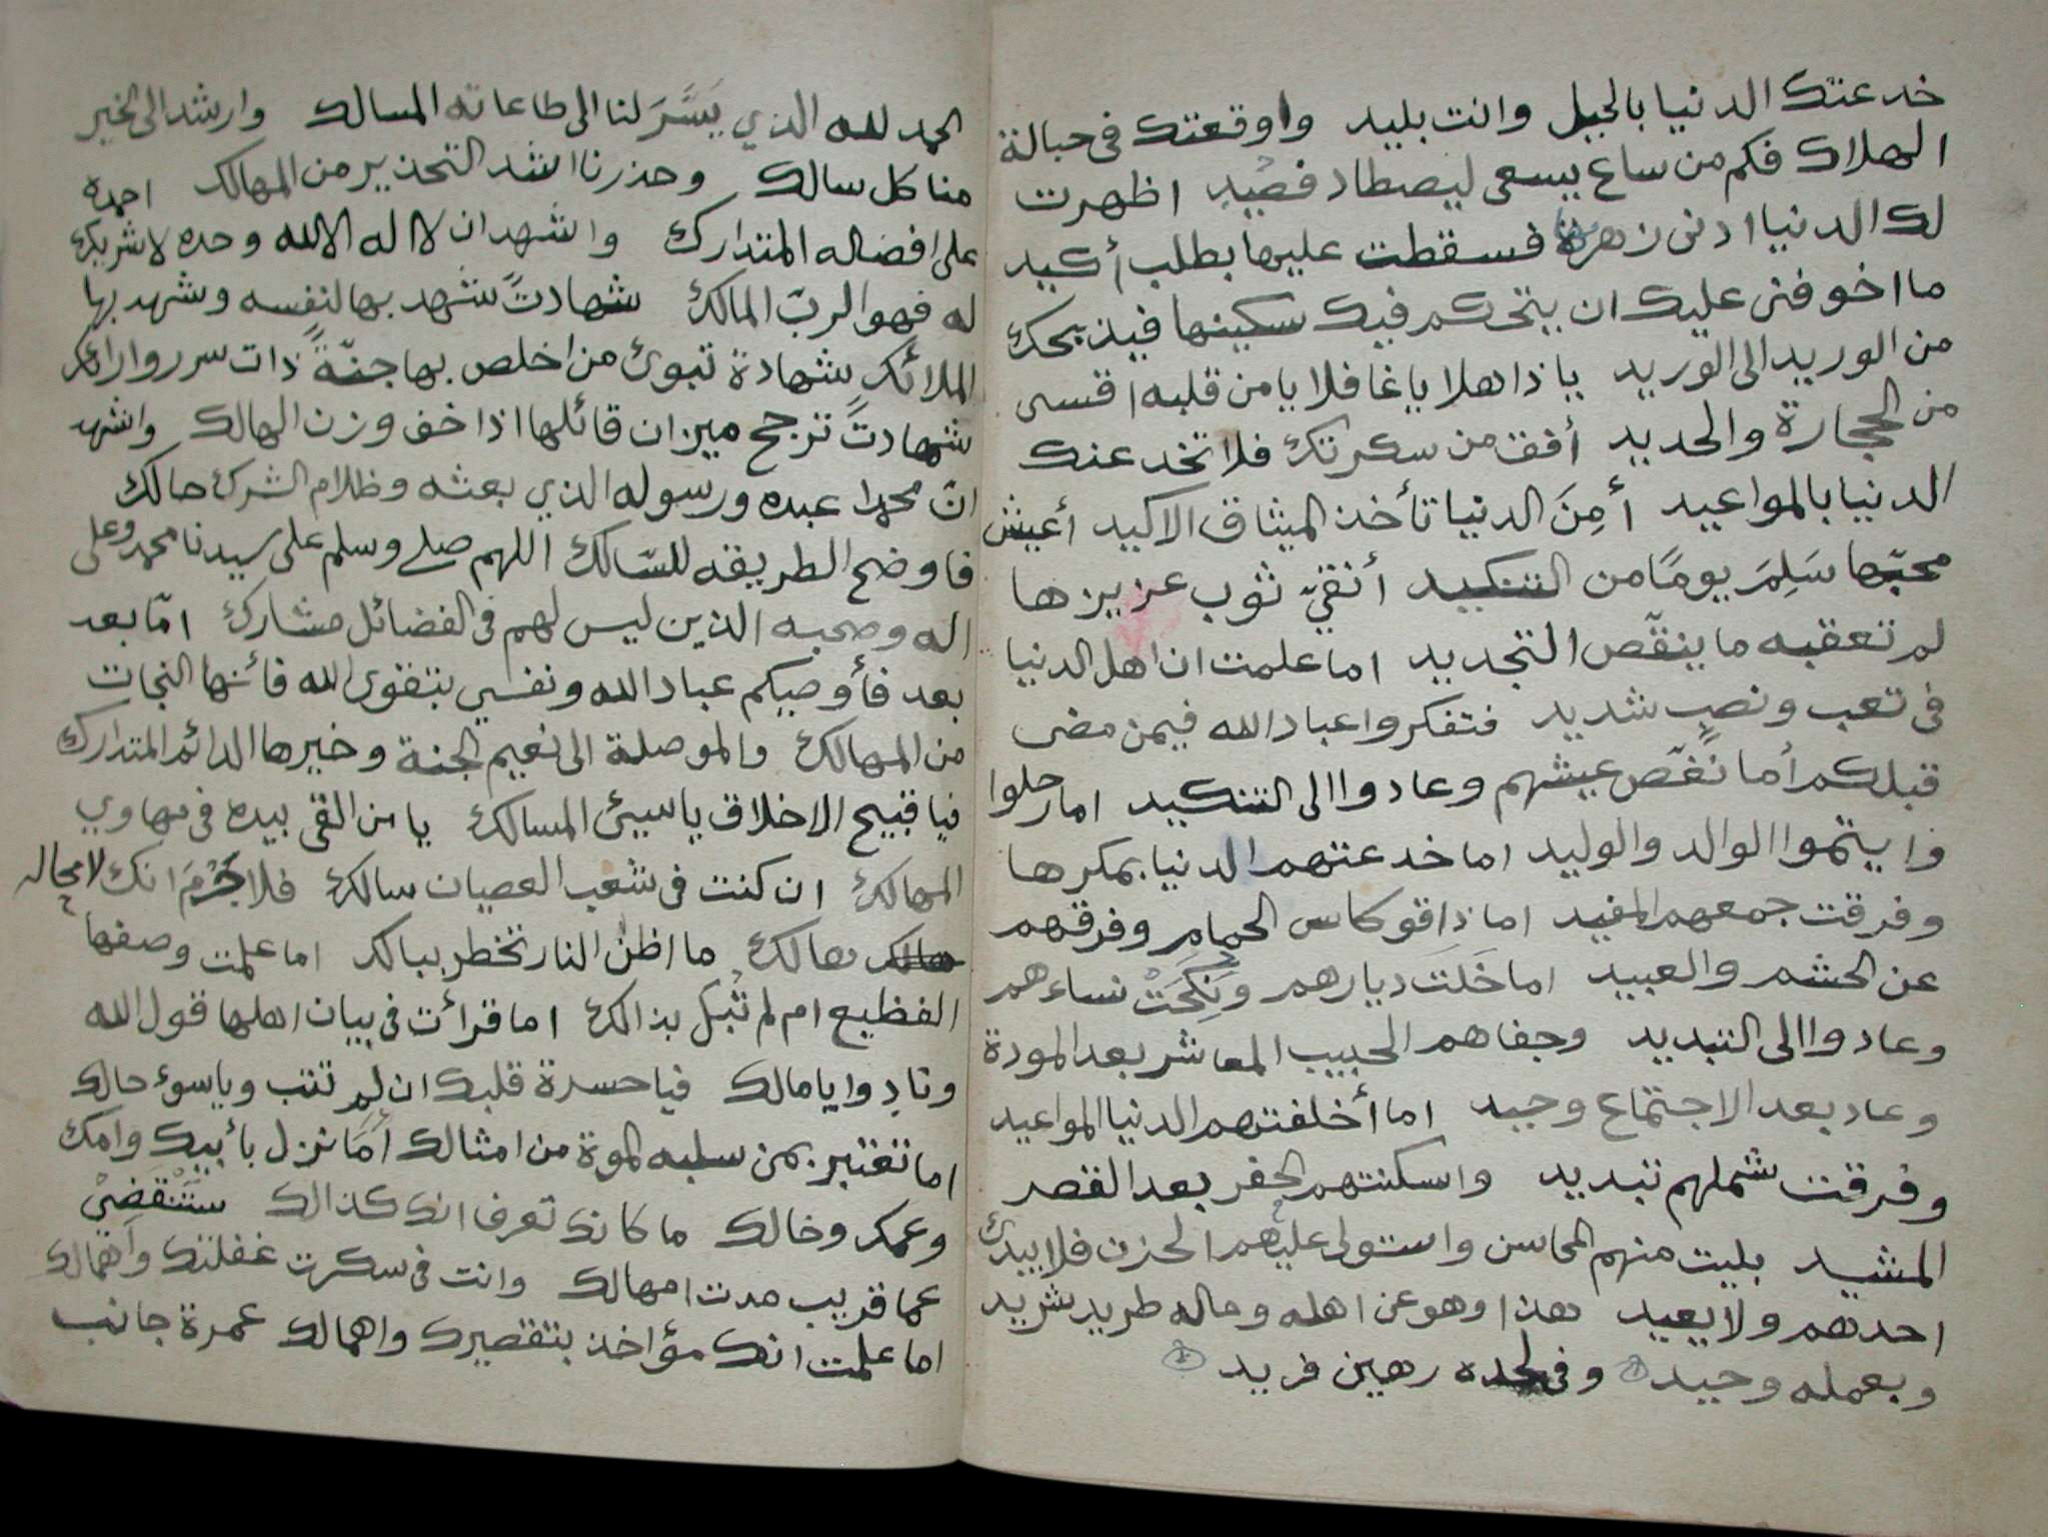 خدعتك الدنيا بالحيل وانت بليد واوقعتك فى حبالة
الهلاك فكم من ساع يسعى ليصطاد فصيد اظهرت
لك الدنيا ادنى زهرة فسقطت عليها بطلب أكيد
ما اخوفنى عليك ان يتحكم فيك سكينها فيذبحك
من الوريد الى الوريد يا ذاهلا يا غافلا يا من قلبه اقسى
من الحجارة والحديد أفق من سكرتك فلا تخدعنك
الدنيا بالمواعيد أمِنَ الدنيا تأخذ الميثاق الاكيد أعيش
محبّها سَلِمَ يومًا من التنكيد أنقيّ ثوب عزيزها
لم تعقبه ما ينقّص التجديد اما علمت ان اهل الدنيا
فى تعب ونصبٍ شديد فتفكروا عباد الله فيمن مضى
قبلكم أما نغّص عيشهم وعادوا الى التنكيد اما رحلوا
وايتموا الوالد والوليد اما خدعتهم الدنيا بمكرها
وفرقت جمعهم المفيد اما ذاقو كاس الحمام وفرقهم
عن الحشم والعبيد اما خَلَت ديارهم ونَكِحَتْ نساءهم
وعادوا الى التبديد وجفاهم الحبيب المعاشر بعد المودة
وعاد بعد الاجتماع وحيد اما أخلفتهم الدنيا المواعيد
وفرقت شملهم تبديد واسكنتهم الحفر بعد القصر
المشيد بليت منهم المحاسن واستولى عليهم الحزن فلا يبدئ
احدهم ولا يعيد هذا وهو عن اهله وماله طريد شريد
وبعمله وحيد وفى لحده رهين فريد
الحمد لله الذي يَسَّرَ لنا الى طاعاته المسالك وارشد الى الخير
منا كل سالك وحذرنا اشد التحذير من المهالك احمده
على افضاله المتدارك واشهد ان لا اله الا الله وحده لا شريك
له فهو الربّ المالك شهادتً شهد بها لنفسه وشهد بها
الملائك شهادة تبوئ من اخلص بها جنّةً ذات سرر وارائك
شهادتً ترجح ميزان قائلها اذا خف وزن الهالك واشهد
انّ محمدا عبده ورسوله الذي بعثه وظلام الشرك حالك
فاوضح الطريقه للسّالك اللهم صل وسلم على سيدنا محمد وعلى
اله وصحبه الذين ليس لهم فى الفضائل مشارك امّا بعد
بعد فأوصيكم عباد الله ونفسي بتقوى الله فأنها النجات
من المهالك والموصلة الى نعيم الجنة وخيرها الدائم المتدارك
فيا قبيح الاخلاق يا سيئ المسالك يا من القى بيده فى مهاوي
المهالك ان كنت فى شعب العصيان سالك فلا جَرَمَ انك لا محاله
هالك ما اظن النار تخطر ببالك اما علمت وصفها
الفظيع ام لم تُبَل بذالك اما قرأت فى بيان اهلها قول الله
ونادوا يا مالك فيا حسرة قلبك ان لم تتب ويا سوء حالك
اما تعتبر بمن سلبه الموة من امثالك أمَا نزل بأبيك وامك
وعمك وخالك ما كانك تعرف انك كذالك ستَنْقَضيْ
عما قريب مدت امهالك وانت فى سكرت غفلتك واهمالك
اما علمت انك مؤاخذ بتقصيرك واهمالك عمرة جانب